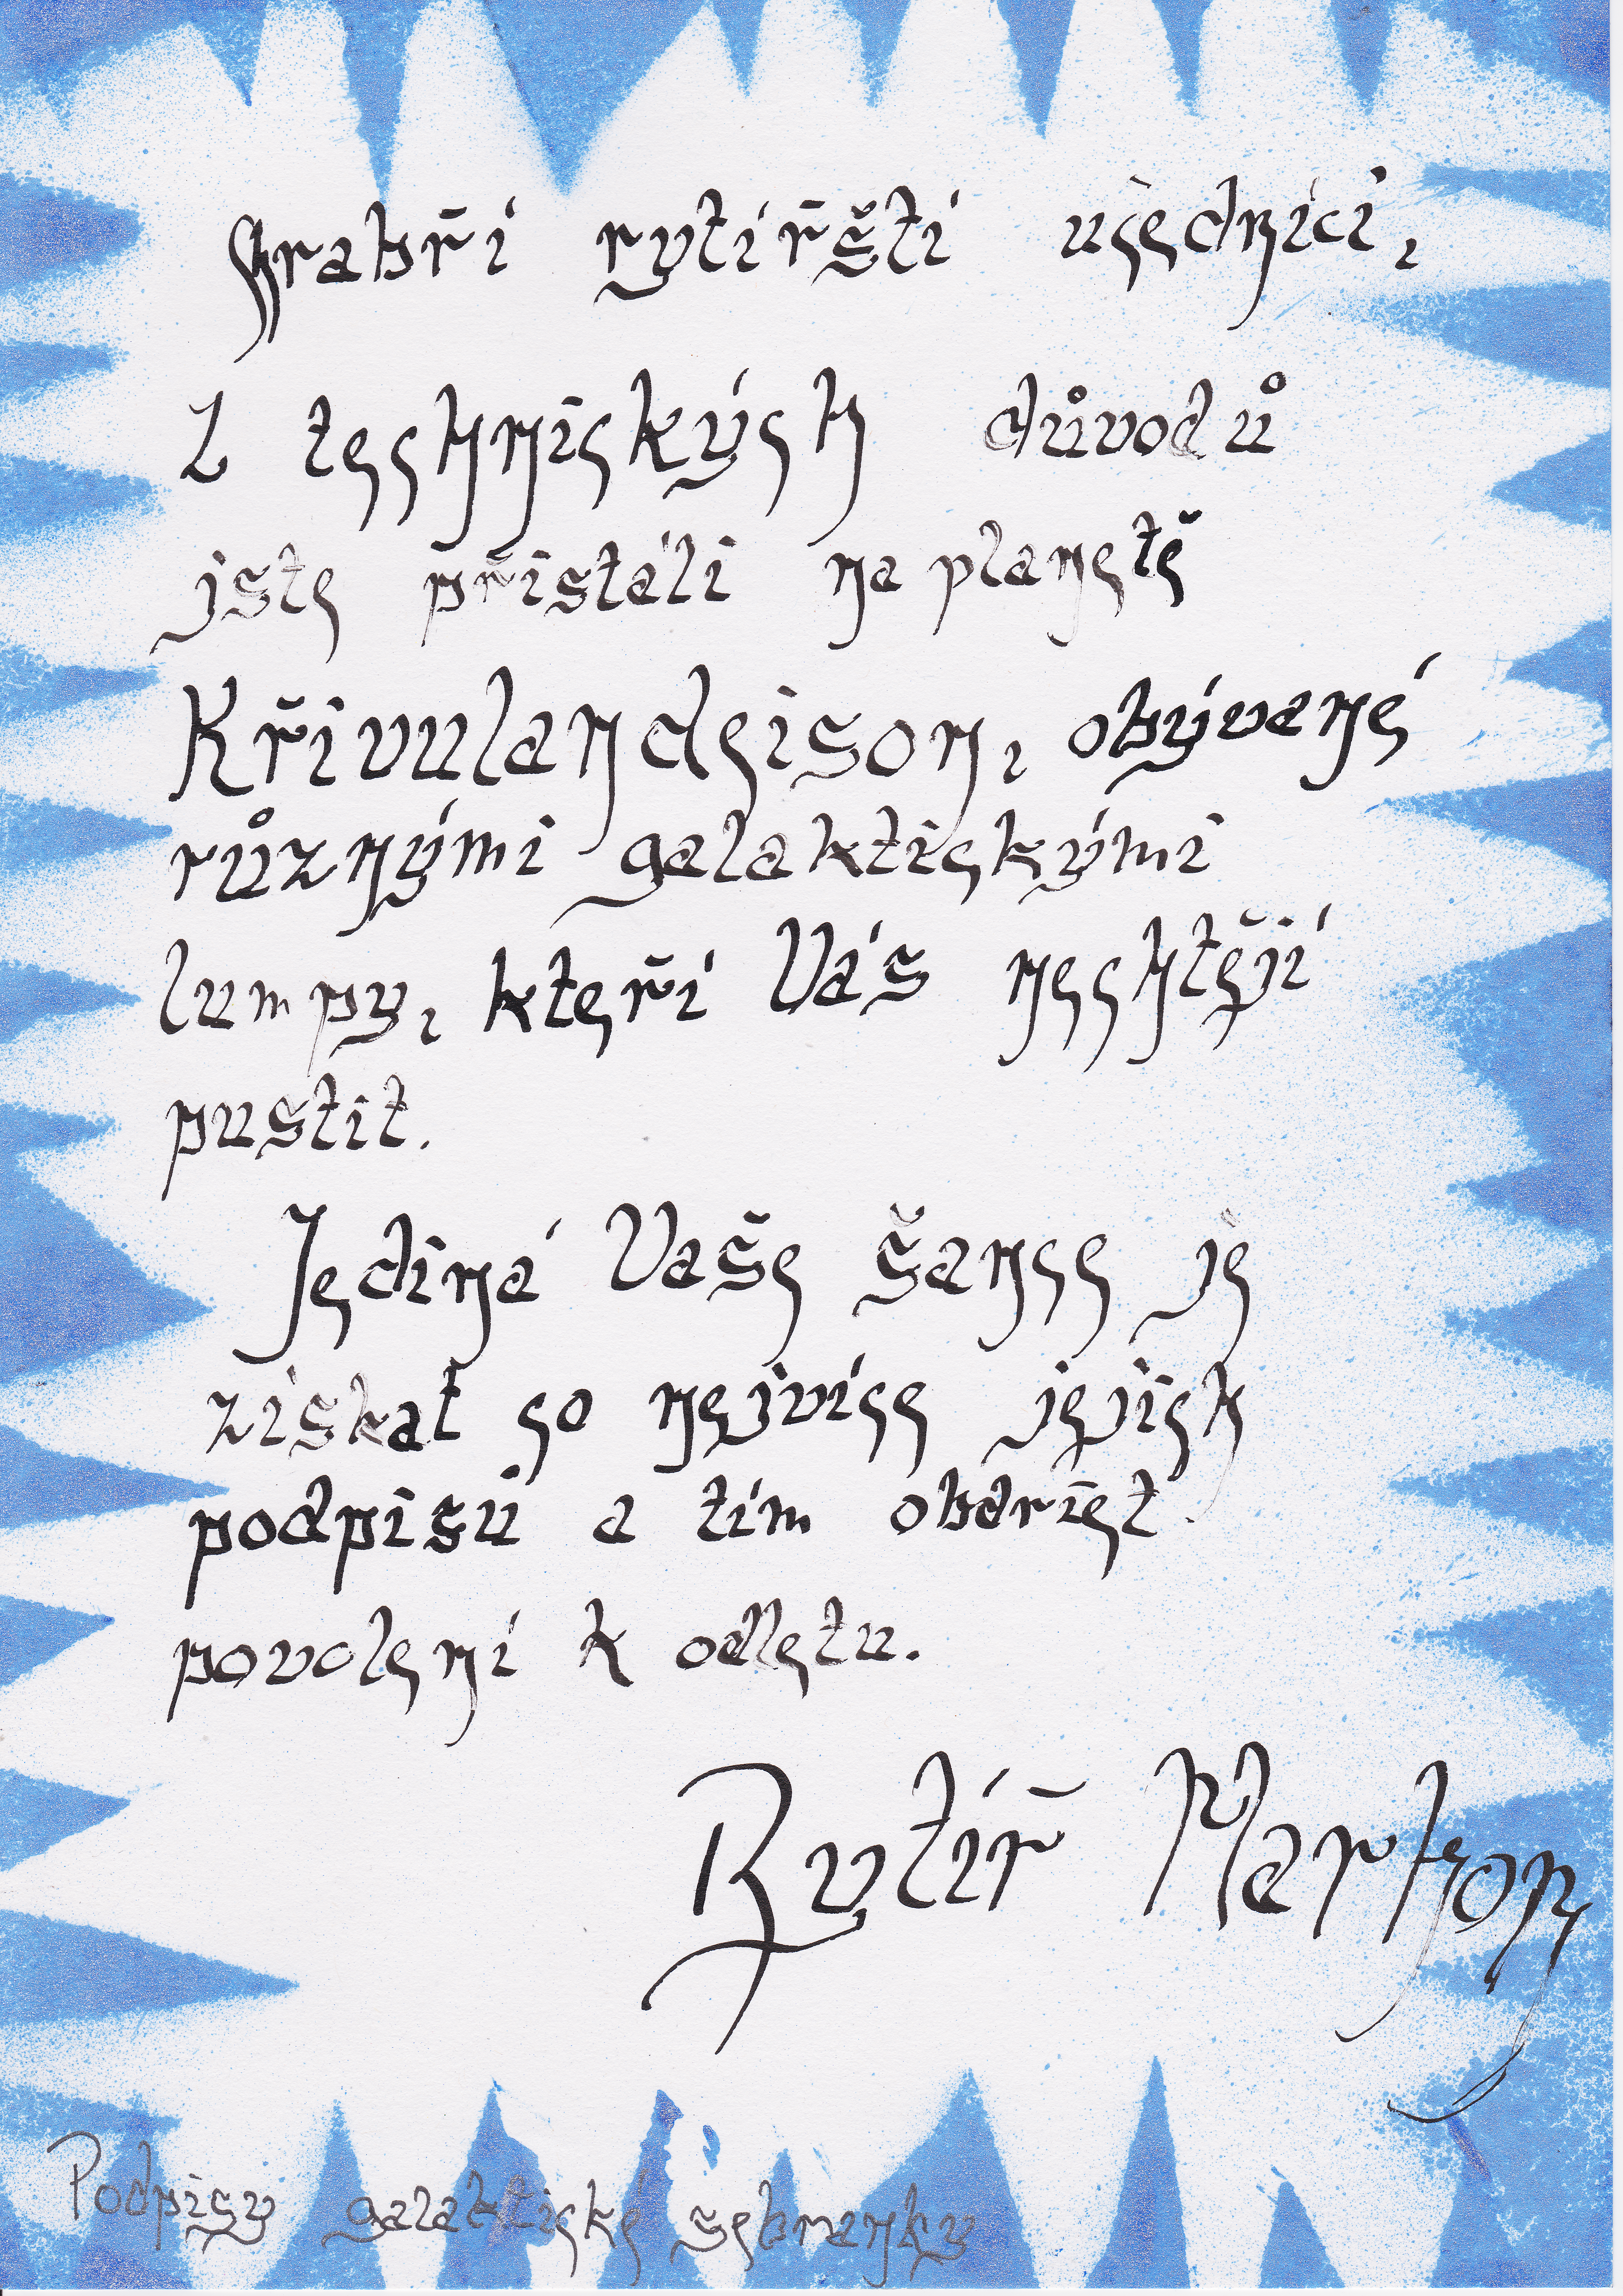 Chrabří rytířští učedníci,
Z technických důvodů
jste přistáli na planetě
Křivulandeison, obývané
různými galaktickými
lumpy, kteří Vás nechtějí
pustit.
Jediná Vaše šance je
získat co nejvíce jejich
podpisů a tím obdržet
povolení k odletu.
Rytíř
Podpisy galaktické šebranky